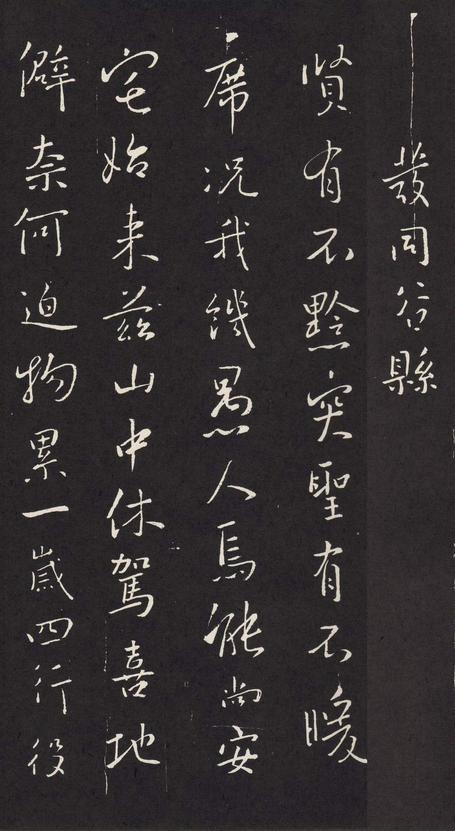 發同谷縣
賢有不黔突聖有不暖
席況我饑愚人焉能尚安
宅始來茲山中休駕喜地
僻奈何迫物累一歲四行役